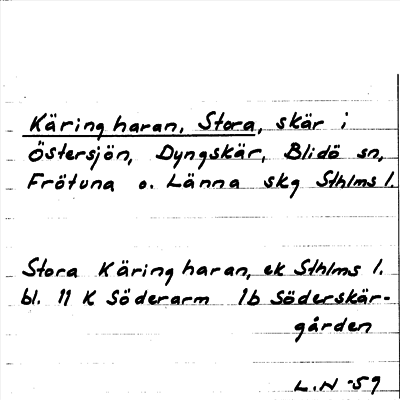 Käringharan, Stora, skär i
Östersjön, Dyngskär, Blidö sn,
Frötuna o. Länna skg Sthlms l.
Stora Käringharan, ek Sthlms l.
bl. 11 K Söderarm 1b Söderskär-
gården
L.N -59